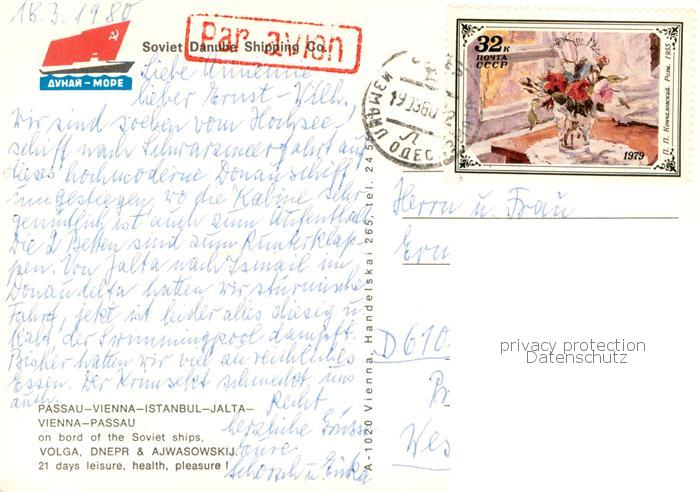 18.3.1980
Par avion
Soviet Danube Shipping Co.
ДУНАЙ - МОРЕ
Liebe Annemie
lieber Ernst-Wilh.
wir sind soeben vom Hochsee
schiff nach Schwarzmeerfahrt auf
dieses hochmoderne Donauschiff
umgestiegen, wo die Kabine sehr
gemütlich ist auch zum Aufenthalt
Die 2 Betten sind zum Runterklap-
pen. Von Jalta nach Ismail im
Donaudelta hatten wir stürmische
Fahrt, jetzt ist leider alles diesig u
kalt, der Swimmingpool dampft.
Bisher hatten wir viel zu reichliches
Essen. Der Krimsekt schmeckt uns
auch. Recht
herzliche Grüsse
Eure
PASSAU–VIENNA–ISTANBUL–JALTA–
VIENNA–PASSAU
on bord of the Soviet ships,
VOLGA, DNEPR & AJWASOWSKIJ.
21 days leisure, health, pleasure !
A-1020 Vienna, Handelskai 265, tel. 24 5
32 к
ПОЧТА
СССР
1979
П. П. Кончаловский. Розы. 1955
ИЗМАИЛ
Herrn u. Frau
D 610
Wes
privacy protection
Datenschutz